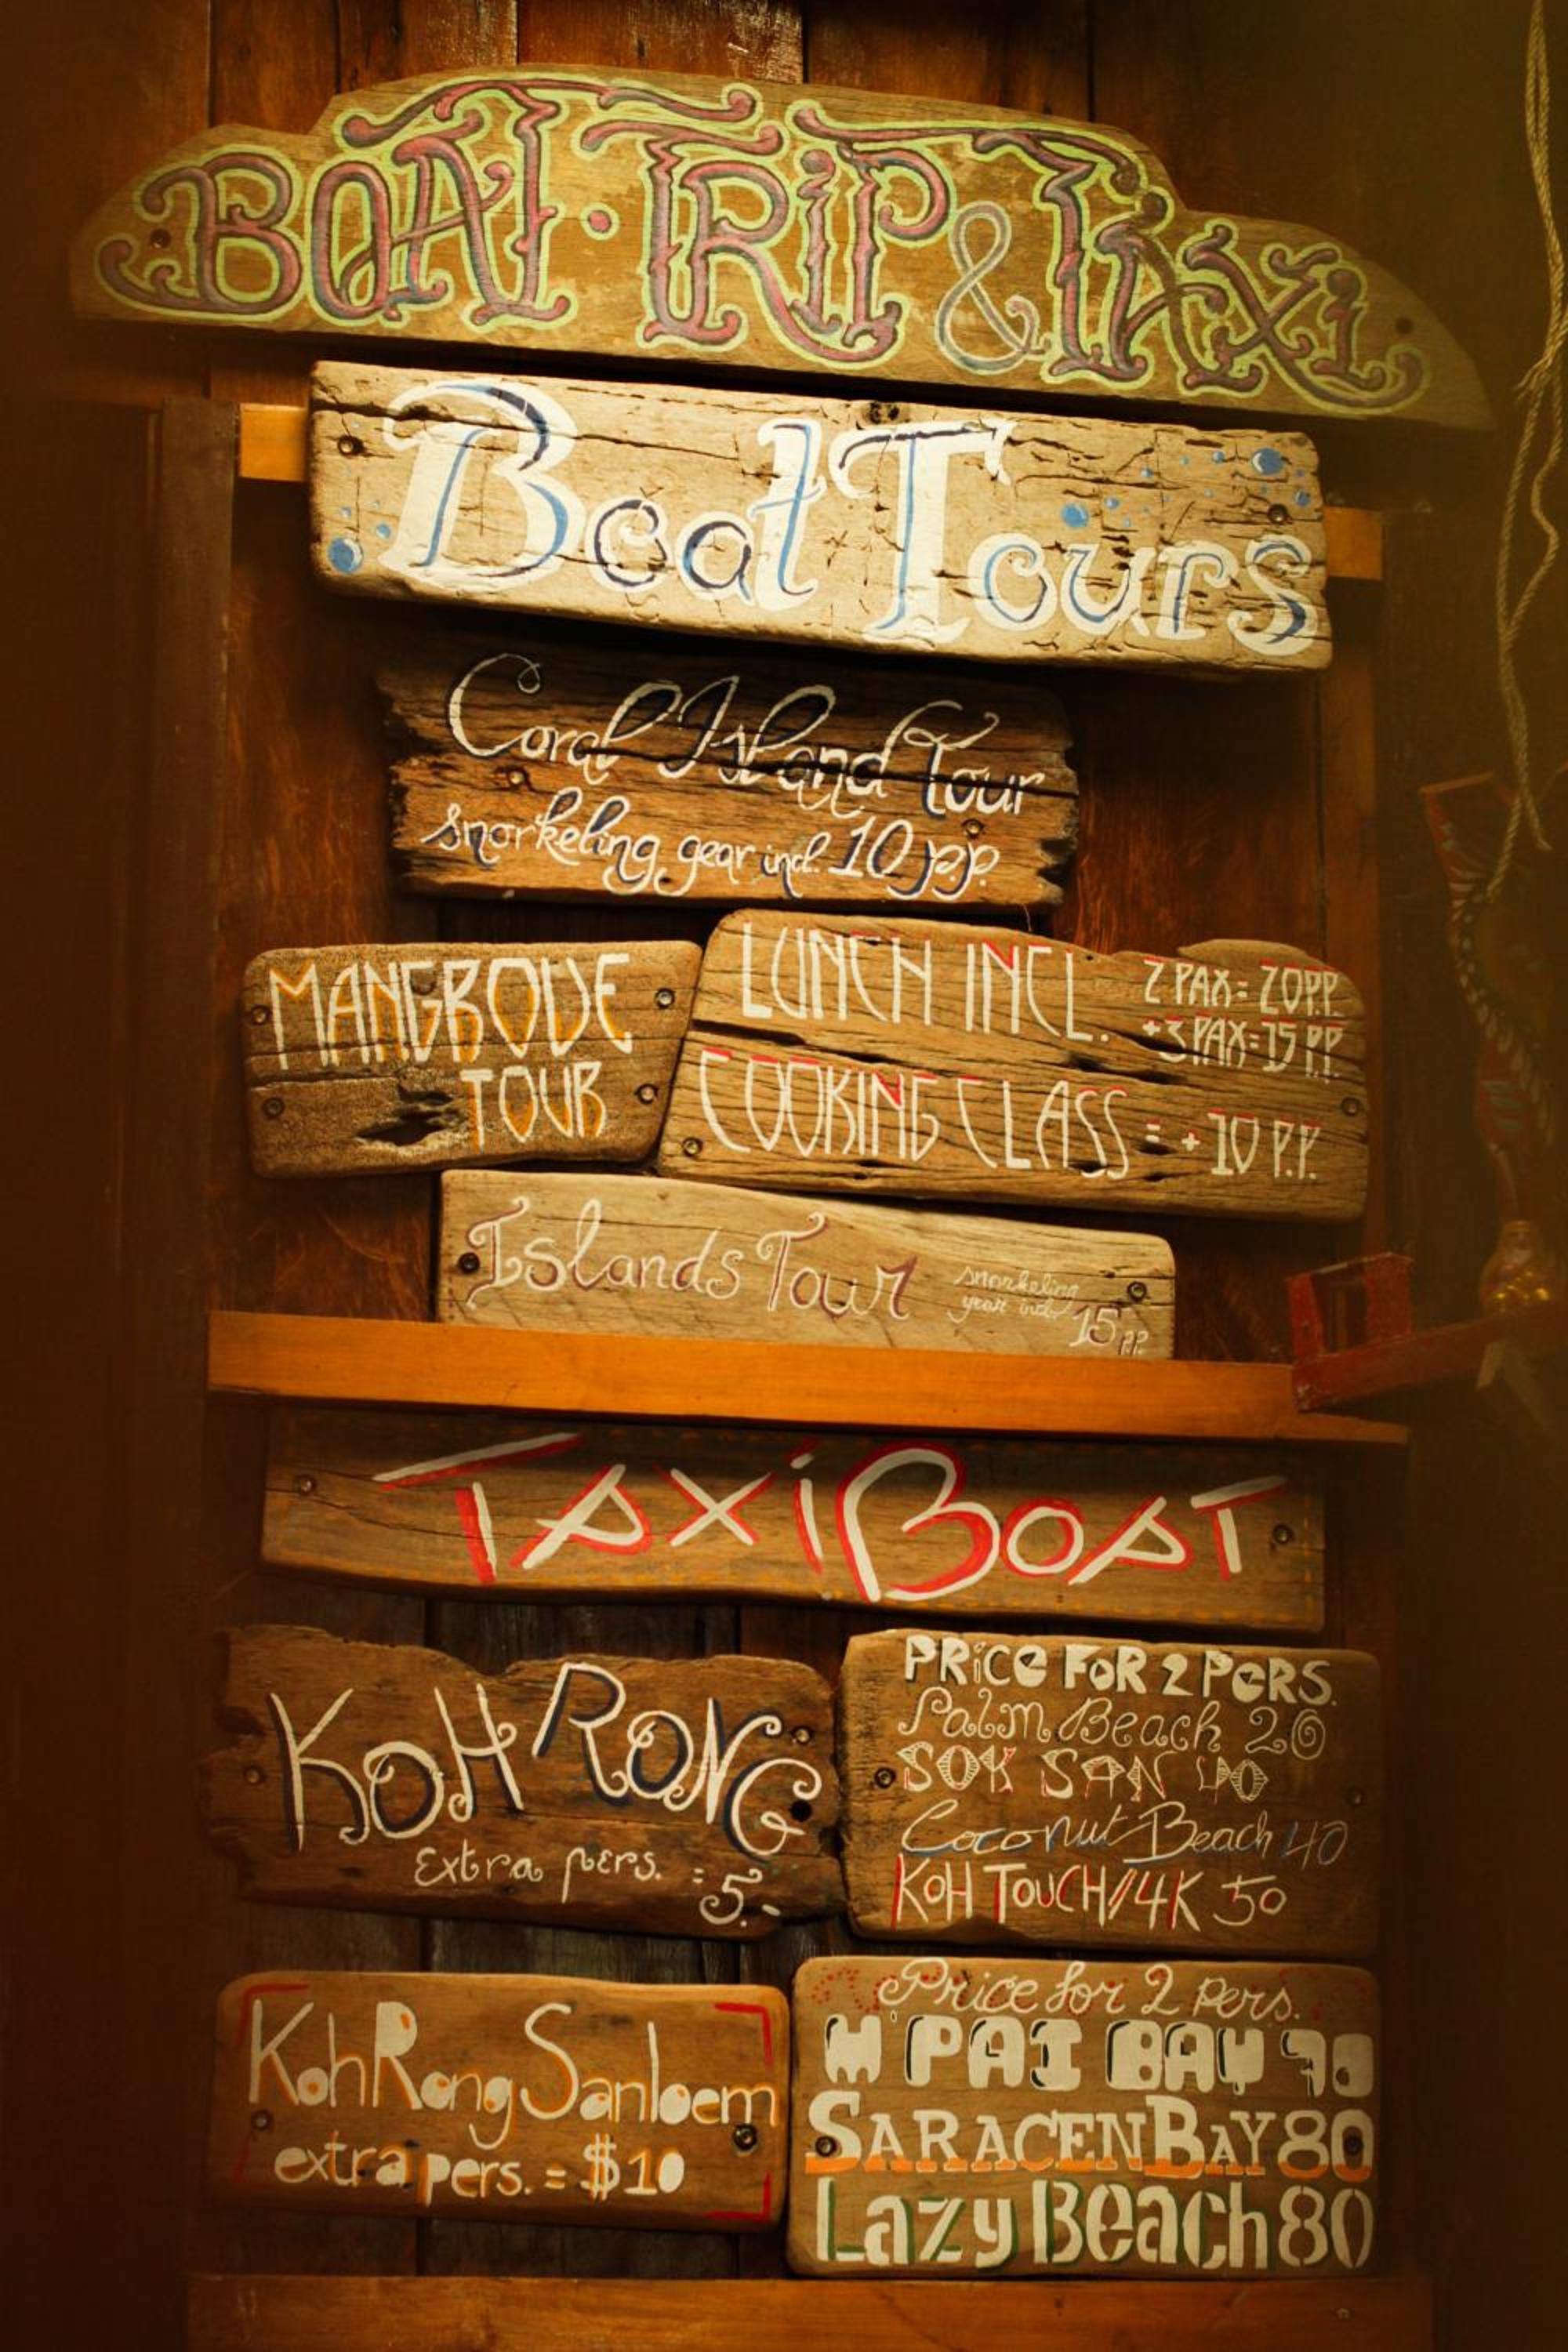 BOAT · TRIP & TAXI
Boat Tours
Coral Island Tour
snorkeling gear incl. 10 p.p.
MANGROVE
TOUR
LUNCH INCL.
2 PAX = 20 P.P.
+3 PAX = 15 P.P.
COOKING CLASS = +10 P.P.
Islands Tour
snorkeling
gear incl.
15 p.p.
TAXI BOAT
KOH RONG
Extra pers. = 5.-
PRiCE FOR 2 PERS.
Palm Beach 20
SOK SAN 40
Coconut Beach 40
KOH TOUCH//4K 50
Koh Rong Sanloem
extra pers. = $10
Price for 2 pers.
M'PAI BAY 90
SARACEN BAY 80
Lazy BEach 80